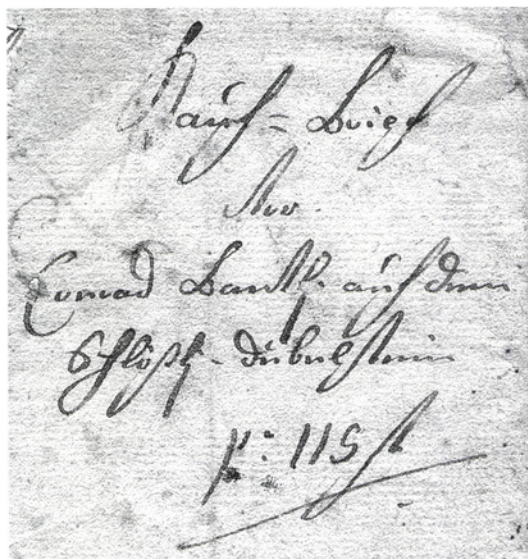 Kauf-Brief
Conrad Bantli auf dem
Schlößli-Dübelstein
p: 115 fl